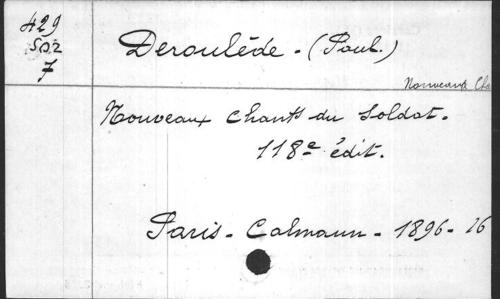 429
502
7
Deroulède - (Paul.)
Nouveaux Cha
Nouveaux chants du Soldat.
118e édit.
Paris - Calmann - 1896 - 16